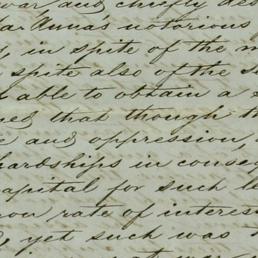 war and chiefly de
Anna's notorious
in spite of the m
spite also of the s
able to obtain a
that though th
and oppression,
hardships in conseq
capital for such le
rate of interes
yet such was